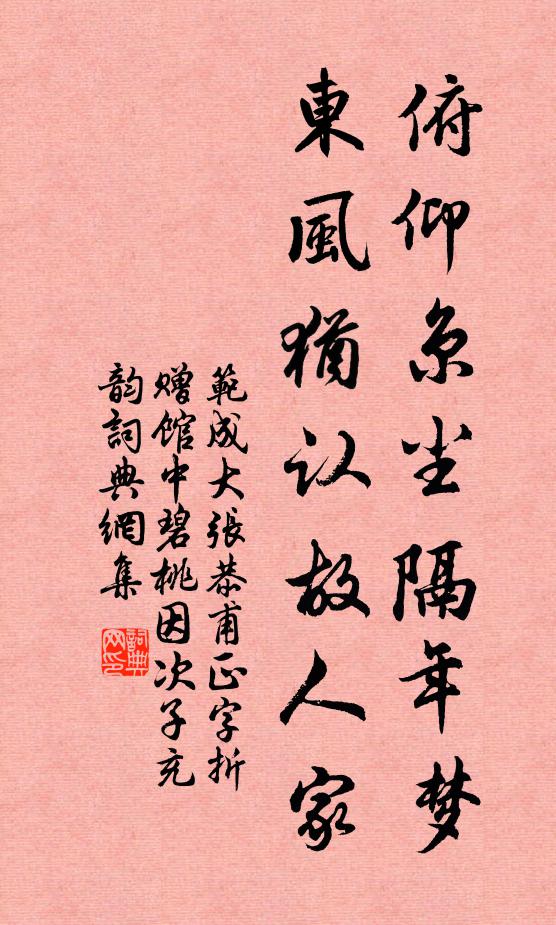 俯仰京尘隔年梦
東風猶认故人家
範成大張恭甫正字折
赠馆中碧桃因次子充
韵詞典網集
詞典
网印